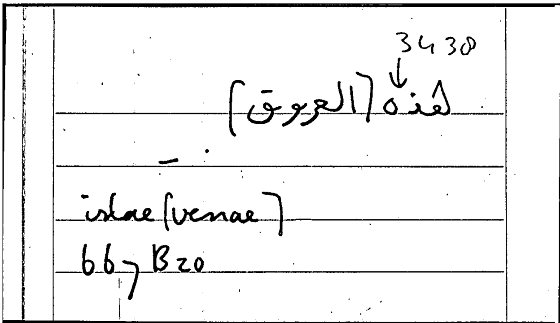 3438
هذه (العروق)
istae (venae)
667 B20